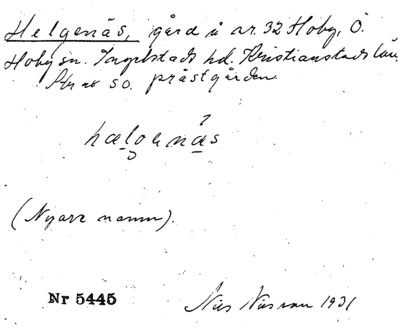 Helgenäs, gård å nr 32 Hoby, Ö.
Hoby sn. Ingelstads hd. Kristianstads län.
Str nv so. prästgården.
(Nyare namn).
Nr 5445
Nils 1931